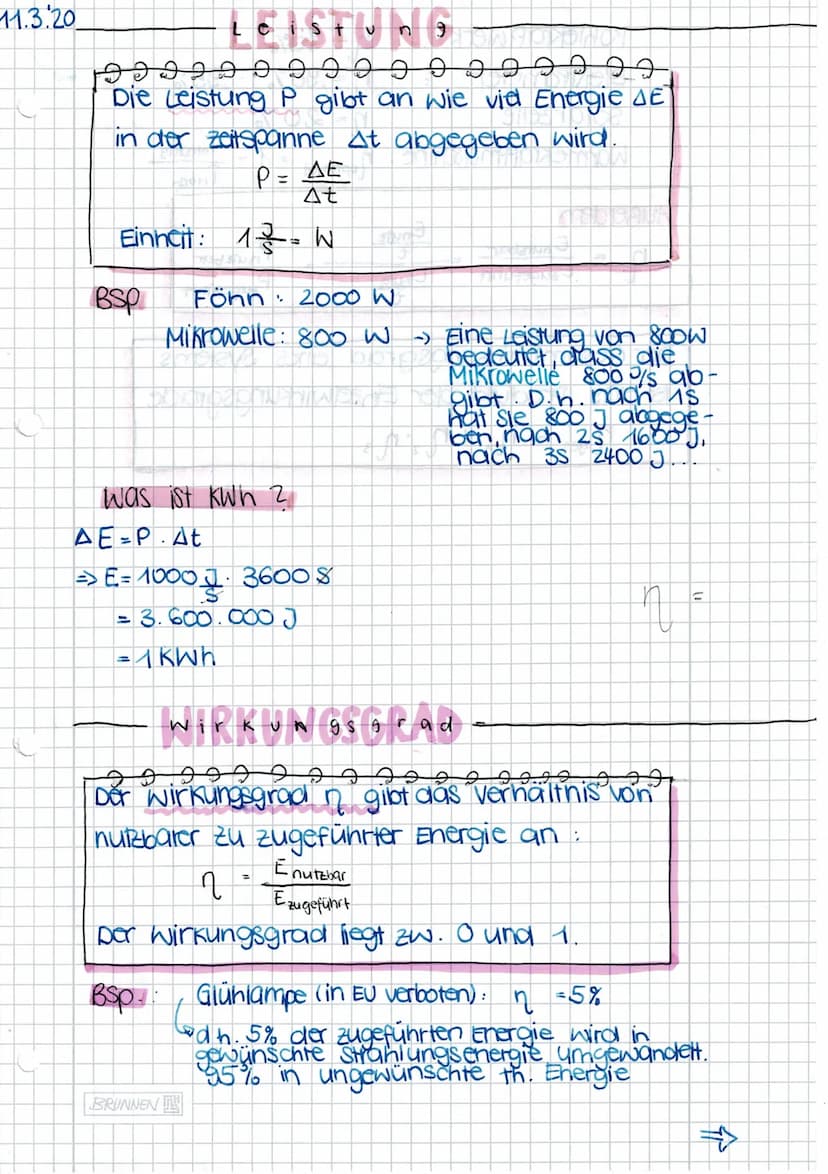 11.3.'20
Leistung
Die Leistung P gibt an wie viel Energie ΔE
in der Zeitspanne Δt abgegeben wird.
P = ΔE / Δt
Einheit: 1 J/s = W
BSP Föhn: 2000 W
Mikrowelle: 800 W → Eine Leistung von 800W
bedeutet, dass die
Mikrowelle 800 J/s ab-
gibt. D.h. nach 1s
hat sie 800 J abgege-
ben, nach 2s 1600 J,
nach 3s 2400 J...
Was ist kWh?
ΔE = P · Δt
⇒ E = 1000 J/s · 3600 s
= 3.600.000 J
= 1 kWh
η =
Wirkungsgrad
Der Wirkungsgrad η gibt das Verhältnis von
nutzbarer zu zugeführter Energie an:
η = E nutzbar / E zugeführt
Der Wirkungsgrad liegt zw. 0 und 1.
BSP.: Glühlampe (in EU verboten): η = 5%
↳ d.h. 5% der zugeführten Energie wird in
gewünschte Strahlungsenergie umgewandelt.
95% in ungewünschte th. Energie
BRUNNEN
⇒